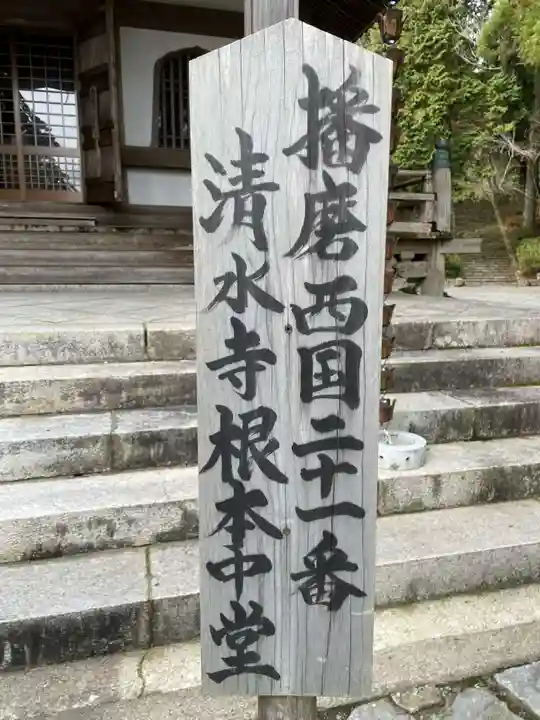 播磨西国二十一番
清水寺根本中堂